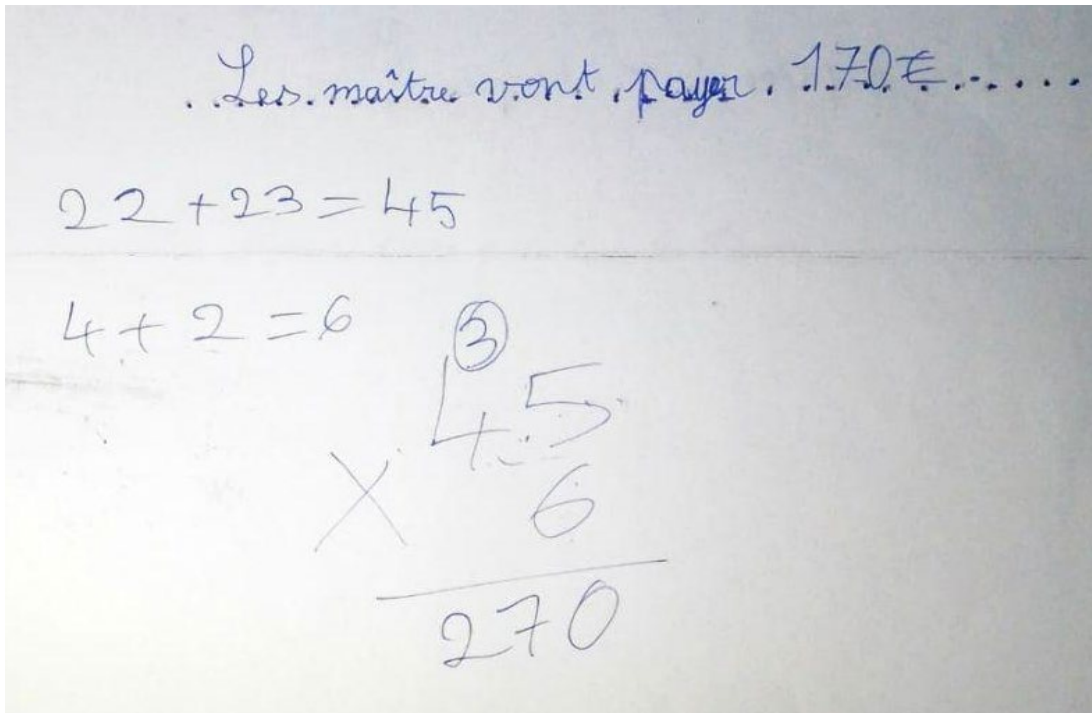 . Les. maître vont. payer. 170€......
22+23=45
4+2=6
3
45
X 6
270